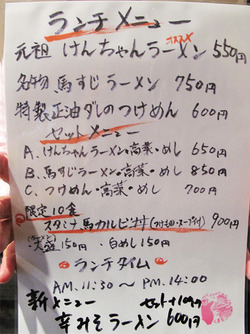 ランチメニュー
元祖 けんちゃんラーメン 550円
オススメ
名物 馬すじラーメン 750円
特製正油ダレのつけめん 600円
セットメニュー
A. けんちゃんラーメン・高菜・めし 650円
B. 馬すじラーメン・高菜・めし 850円
C. つけめん・高菜・めし 700円
限定10食
スタミナ馬カルビ丼 900円
150円 白めし150円
ランチタイム
AM.11:30 ~ PM.14:00
新メニュー
辛みそラーメン 600円